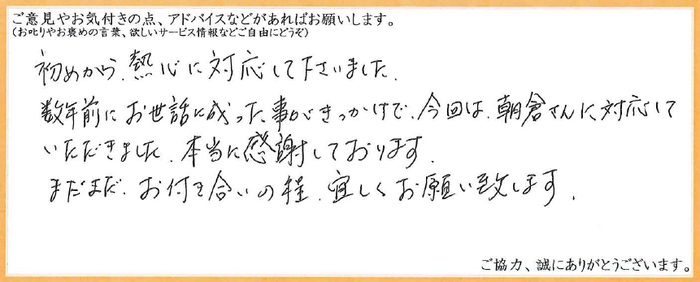 ご意見やお気付きの点、アドバイスなどがあればお願いします。
(お叱りやお褒めの言葉、欲しいサービス情報などご自由にどうぞ)
初めから、熱心に対応して下さいました。
数年前にお世話に成った事がきっかけで、今回は、朝倉さんに対応して
いただきました。本当に感謝しております。
まだまだ、お付き合いの程、宜しくお願い致します。
ご協力、誠にありがとうございます。